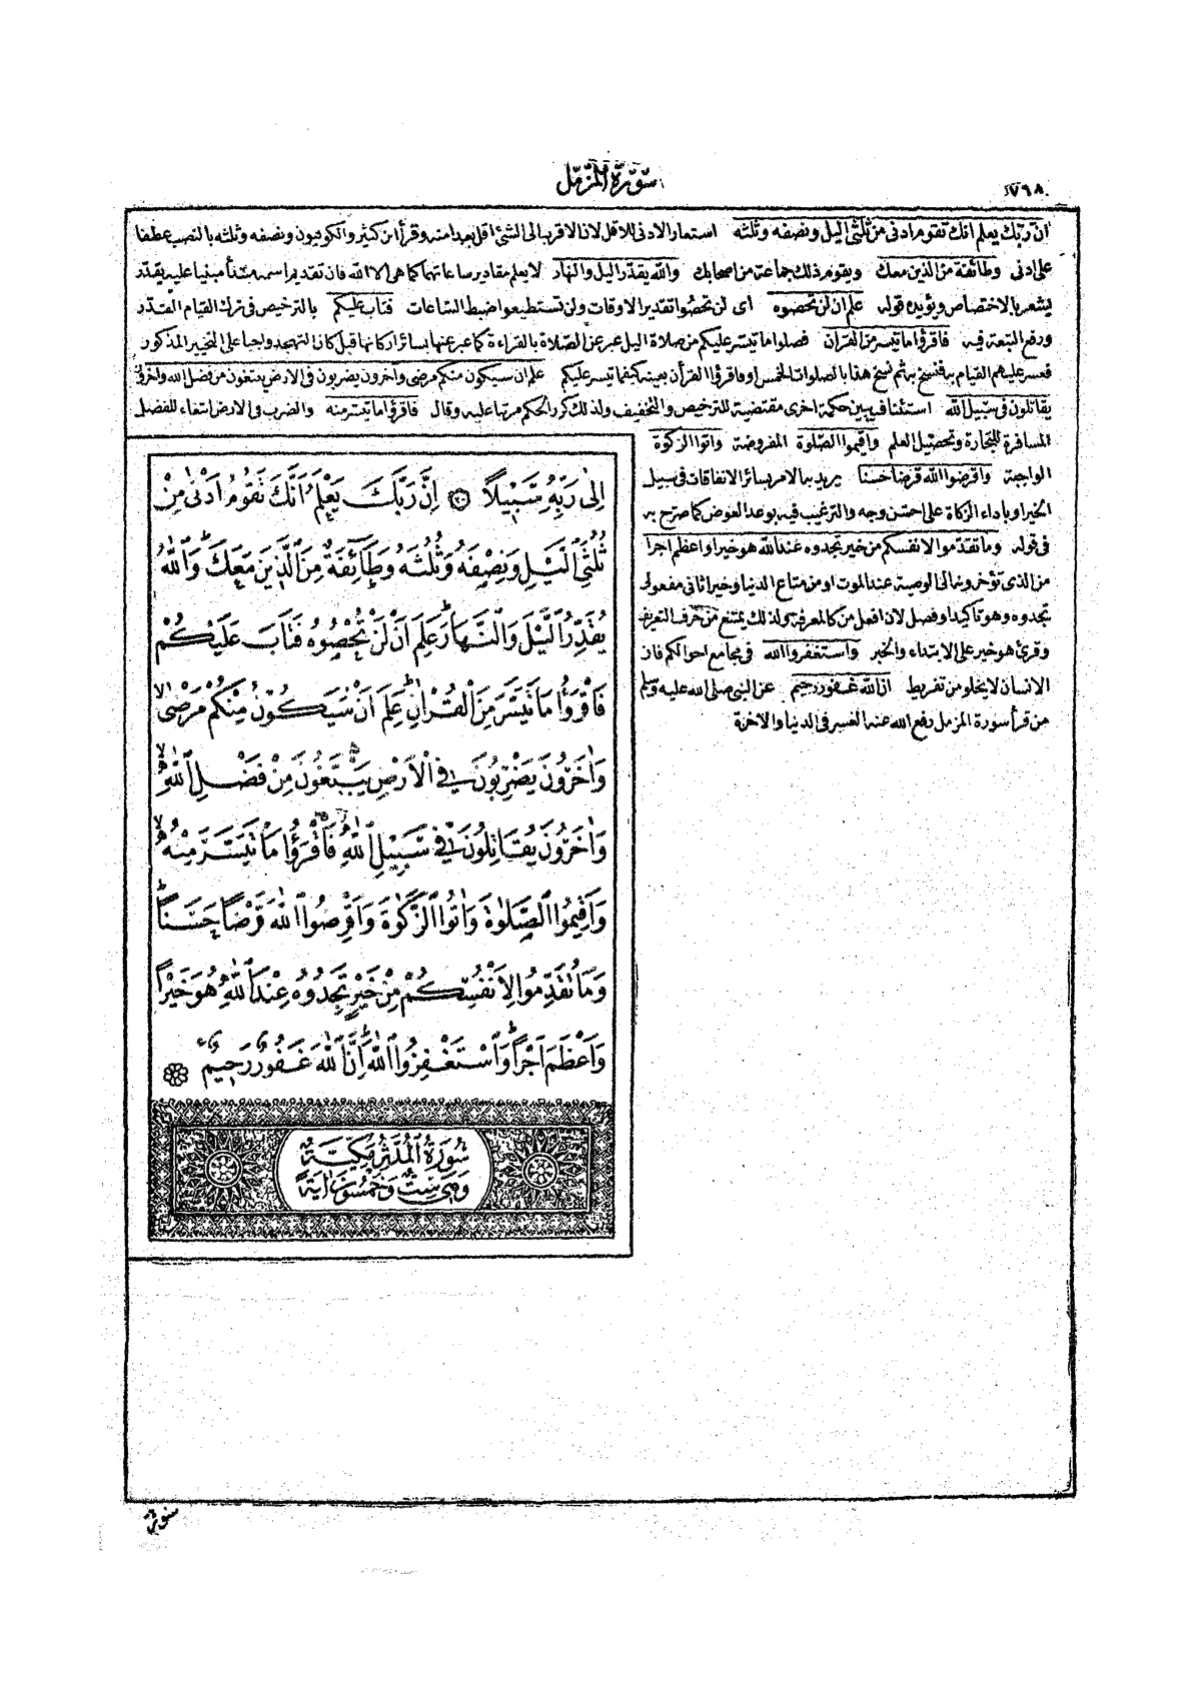 ٧٦٨
سورة المزمل
ان ربك يعلم انك تقوم ادنى من ثلثى اليل ونصفه وثلثه استعار الادنى للاقل لان الاقرب الى الشئ اقل بعدا منه وقرأ ابن كثير والكوفيون ونصفه وثلثه بالنصب عطفا
على ادنى وطائفة من الذين معك ويقوم ذلك جماعة من اصحابك والله يقدر اليل والنهار لا يعلم مقادير ساعاتهما كما هى الا الله فان تقديم اسمه مبتدأ مبنيا عليه يقدر
يشعر بالاختصاص ويؤيده قوله علم ان لن تحصوه اى لن تحصوا تقدير الاوقات ولن تستطيعوا ضبط الساعات فتاب عليكم بالترخيص فى ترك القيام المقدر
ورفع التبعة فيه فاقرؤا ما تيسر من القرآن فصلوا ما تيسر عليكم من صلاة اليل عبر عن الصلاة بالقراءة كما عبر عنها بسائر اركانها قيل كان التهجد واجبا على التخيير المذكور
فعسر عليهم القيام به فنسخ به ثم نسخ هذا بالصلوات الخمس او فاقرؤا القرآن بعينه كيفما تيسر عليكم علم ان سيكون منكم مرضى وآخرون يضربون فى الارض يبتغون من فضل الله وآخرون
يقاتلون فى سبيل الله استئناف يبين حكمة اخرى مقتضية للترخيص والتخفيف ولذلك كرر الحكم مرتبا عليه وقال فاقرؤا ما تيسر منه والضرب فى الارض ابتغاء للفضل
المسافرة للتجارة وتحصيل العلم واقيموا الصلوة المفروضة واتوا الزكوة
الواجبة واقرضوا الله قرضا حسنا يريد به الامر بسائر الانفاقات فى سبيل
الخير او باداء الزكاة على احسن وجه والترغيب فيه بوعد العوض كما صرح به
فى قوله وما تقدموا لانفسكم من خير تجدوه عند الله هو خيرا واعظم اجرا
من الذى تؤخرونه الى الوصية عند الموت او من متاع الدنيا وخيرا ثانى مفعولى
تجدوه وهو تأكيد او فصل لان افعل من كالمعرفة ولذلك يمتنع من حرف التعريف
وقرئ هو خير على الابتداء والخبر واستغفروا الله فى مجامع احوالكم فان
الانسان لا يخلو من تفريط ان الله غفور رحيم عن النبى صلى الله عليه وسلم
من قرأ سورة المزمل رفع الله عنه العسر فى الدنيا والآخرة
اِلٰى رَبِّهٖ سَبٖيلًا ۝ اِنَّ رَبَّكَ يَعْلَمُ اَنَّكَ تَقُومُ اَدْنٰى مِنْ
ثُلُثَيِ الَّيْلِ وَنِصْفَهُ وَثُلُثَهُ وَطَٓائِفَةٌ مِنَ الَّذٖينَ مَعَكَ وَاللّٰهُ
يُقَدِّرُ الَّيْلَ وَالنَّهَارَ عَلِمَ اَنْ لَنْ تُحْصُوهُ فَتَابَ عَلَيْكُمْ
فَاقْرَؤُا مَا تَيَسَّرَ مِنَ الْقُرْاٰنِ عَلِمَ اَنْ سَيَكُونُ مِنْكُمْ مَرْضٰى
وَاٰخَرُونَ يَضْرِبُونَ فِي الْاَرْضِ يَبْتَغُونَ مِنْ فَضْلِ اللّٰهِ
وَاٰخَرُونَ يُقَاتِلُونَ فٖي سَبٖيلِ اللّٰهِ فَاقْرَؤُا مَا تَيَسَّرَ مِنْهُ
وَاَقٖيمُوا الصَّلٰوةَ وَاٰتُوا الزَّكٰوةَ وَاَقْرِضُوا اللّٰهَ قَرْضًا حَسَنًا
وَمَا تُقَدِّمُوا لِاَنْفُسِكُمْ مِنْ خَيْرٍ تَجِدُوهُ عِنْدَ اللّٰهِ هُوَ خَيْرًا
وَاَعْظَمَ اَجْرًا وَاسْتَغْفِرُوا اللّٰهَ اِنَّ اللّٰهَ غَفُورٌ رَحٖيمٌ
سُورَةُ الْمُدَّثِّرِ مَكِّيَّةٌ
وَهِيَ سِتٌّ وَخَمْسُونَ اٰيَةً